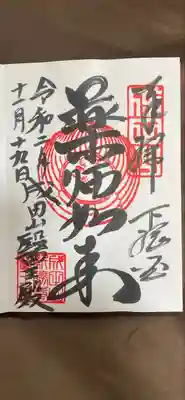 奉拝
下総国
薬師如来
令和二年
十一月十九日
成田山醫王殿